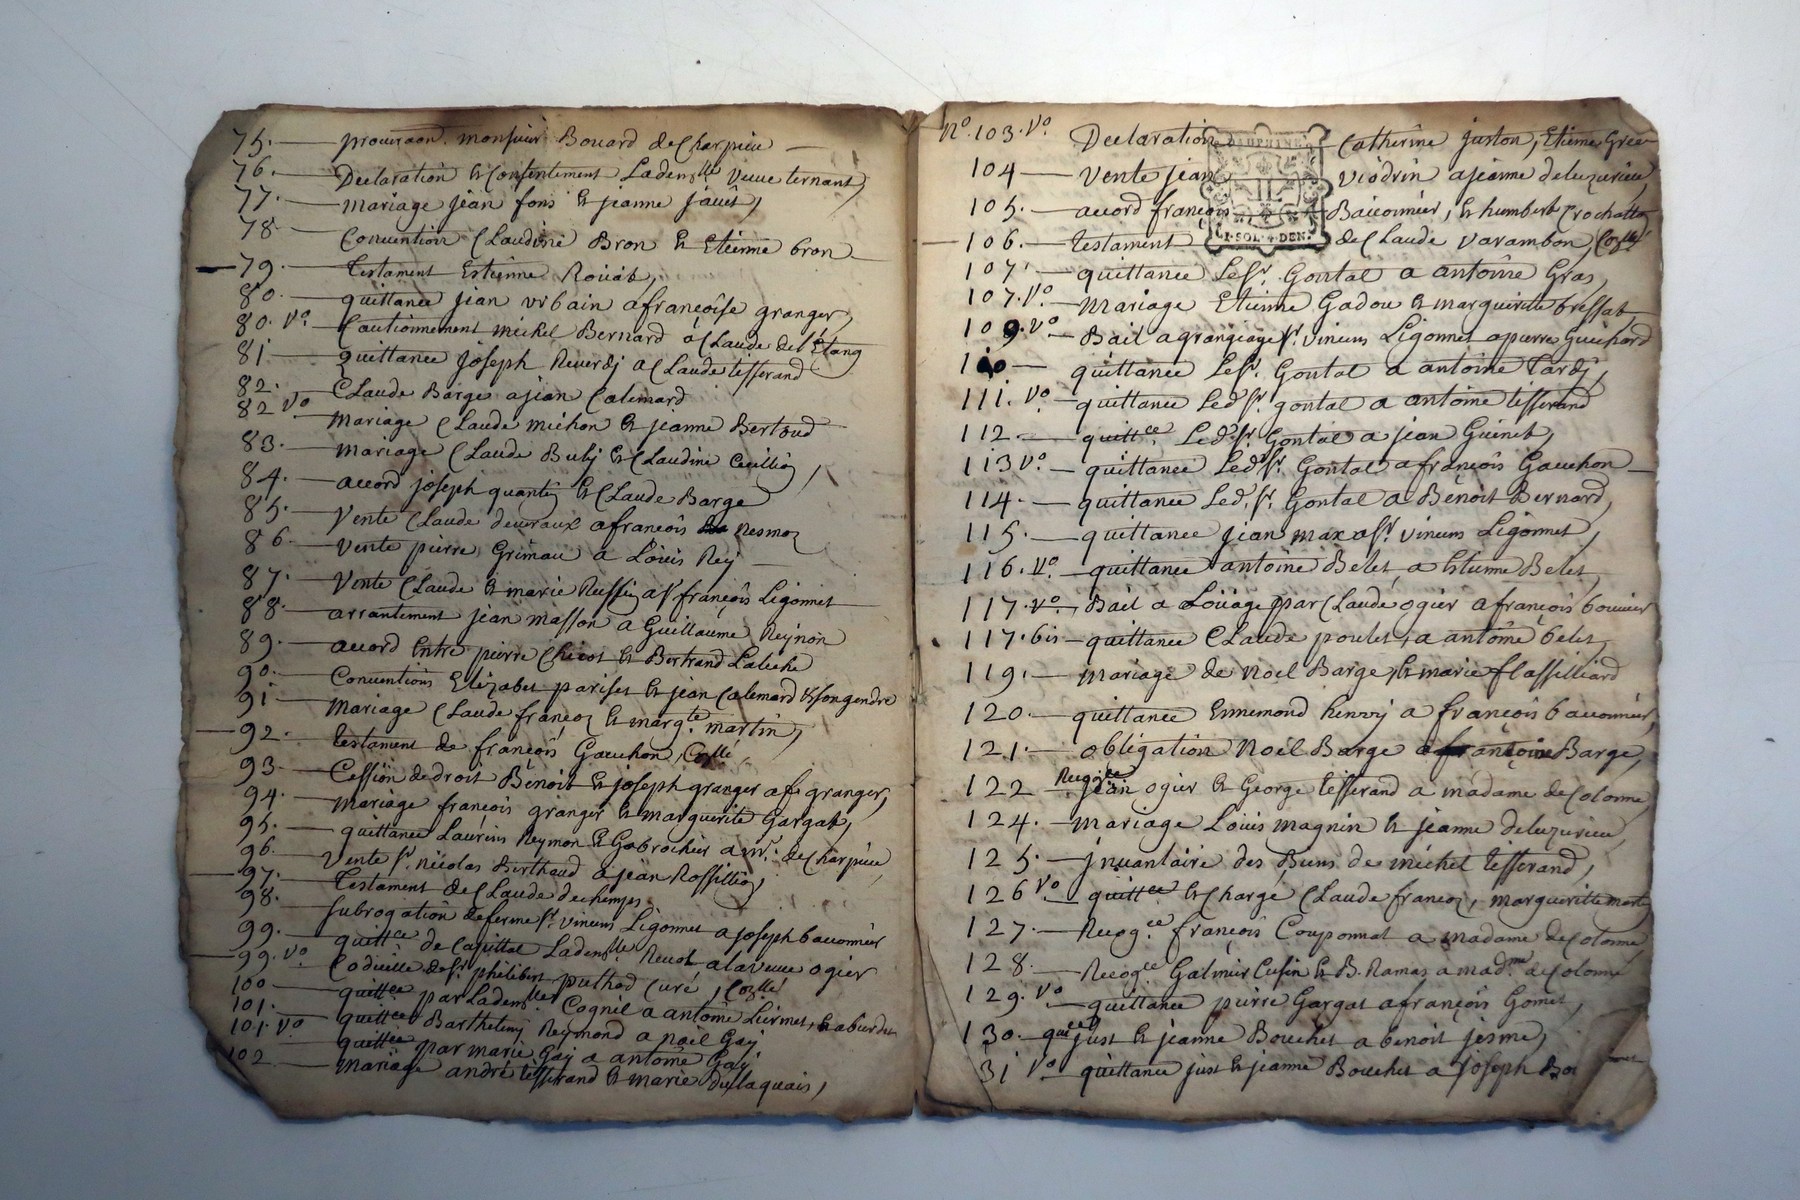 75. procuraon. monsieur Bouard de Charpieu
76. Declaration & Consentement Ladem.lle veuve ternant,
77. mariage jean fons & jeanne
78 Convention Claudine Bron & Etienne bron
79. Testament Estienne Rouat,
80. quittance jean urbain a francoise granger,
80. vo. Cautionnement michel Bernard a Claude del'Etang
81 quittance joseph Reverdj a Claude tisserand
82. Claude Barge a jean Calemard
82 vo mariage Claude michon & jeanne Bertoud
83. mariage Claude & Claudine
84. accord joseph quantin & Claude Barge
85. vente Claude deveraux a francois Nesmoz
86. vente pierre Grimau a Louis Rey
87. vente Claude & marie Russin a Sr francois Ligonnet
88. arrantement jean masson a Guillaume Reynon
89. accord Entre pierre Chicot & Bertrand
90. Conventions Elizabet pariset & jean Calemard & son gendre
91 mariage Claude francoz & marg.te martin,
92. testament de francois Gauchon, Collé
93 Cession de droit Benoit & joseph granger a f. granger,
94. mariage francois granger & marguerite Gargat,
95. quittance Laurens Reymon & Gabrochier a mr. de Charpieu,
96. vente Sr. nicolas Berthaud a jean Rossillion,
97. Testament de Claude dechemps
98. subrogation de ferme Sr. vincens Ligonnet a joseph bauonnier
99. quitt.ce de Capittal Ladem.lle Revol a la veuve ogier
99. vo Codicille de Sr. philibert puthod Curé, Collé
100 quitt.ce par Ladem.lle Cognil a antoine
101. quitt.ce Barthelemy Reymond a noel Gaj
101. vo quitt.ce par marie Gaj a antoine Gaj
102 mariage andré tisserand & marie dulaquais,
No. 103. vo. Declaration Catherine juston, Etienne
DAUPHINÉ
104 vente jean viodrin a jeanne deluzurieu,
105. accord francois Bauonnier, & humbert
106. testament de Claude varambon, Collé
1. SOL. 4. DEN.
107 quittance Le Sr. Gontal a antoine Gras,
107. vo. mariage Etienne Gadou & marguerite bressat
109. vo Bail a grangeage Sr. vincens Ligonnet a pierre Guichard
110 quittance Le Sr. Gontal a antoine Tardj,
111. vo. quittance Led. Sr. gontal a antoine tisserand
112. quitt.ce Led. Sr. Gontal a jean Guinet,
113 vo. quittance Led. Sr. Gontal a francois Gauchon
114. quittance Led. Sr. Gontal a Benoit Bernard,
115. quittance jean max a Sr. vincens Ligonnet,
116. vo. quittance antoine Belet, a Etienne Belet,
117. vo. Bail a Loüage par Claude ogier a francois bouvier
117. bis quittance Claude poulet, a antoine belet,
119. mariage de noel Barge, & marie flassilliard
120. quittance Ennemond henrij a francois bauonnier,
121. obligation noel Barge a antoine Barge,
122 Recog.ce jean ogier & George tisserand a madame de Colonne
124. mariage Louis magnin & jeanne deluzurieu,
125. jnvantaire des Biens de michel tisserand,
126 vo. quitt.ce & Charge Claude francoz, margueritte
127. Recog.ce francois Couponnat a madame de Colonne
128. Recog.ce Galmier Cusin & B. Ramas a mad.me de Colonne
129. vo. quittance pierre Gargat a francois Gomet,
130. qu.ce just & jeanne Bouchet a benoit jesme,
31 vo quittance just & jeanne Bouchet a joseph